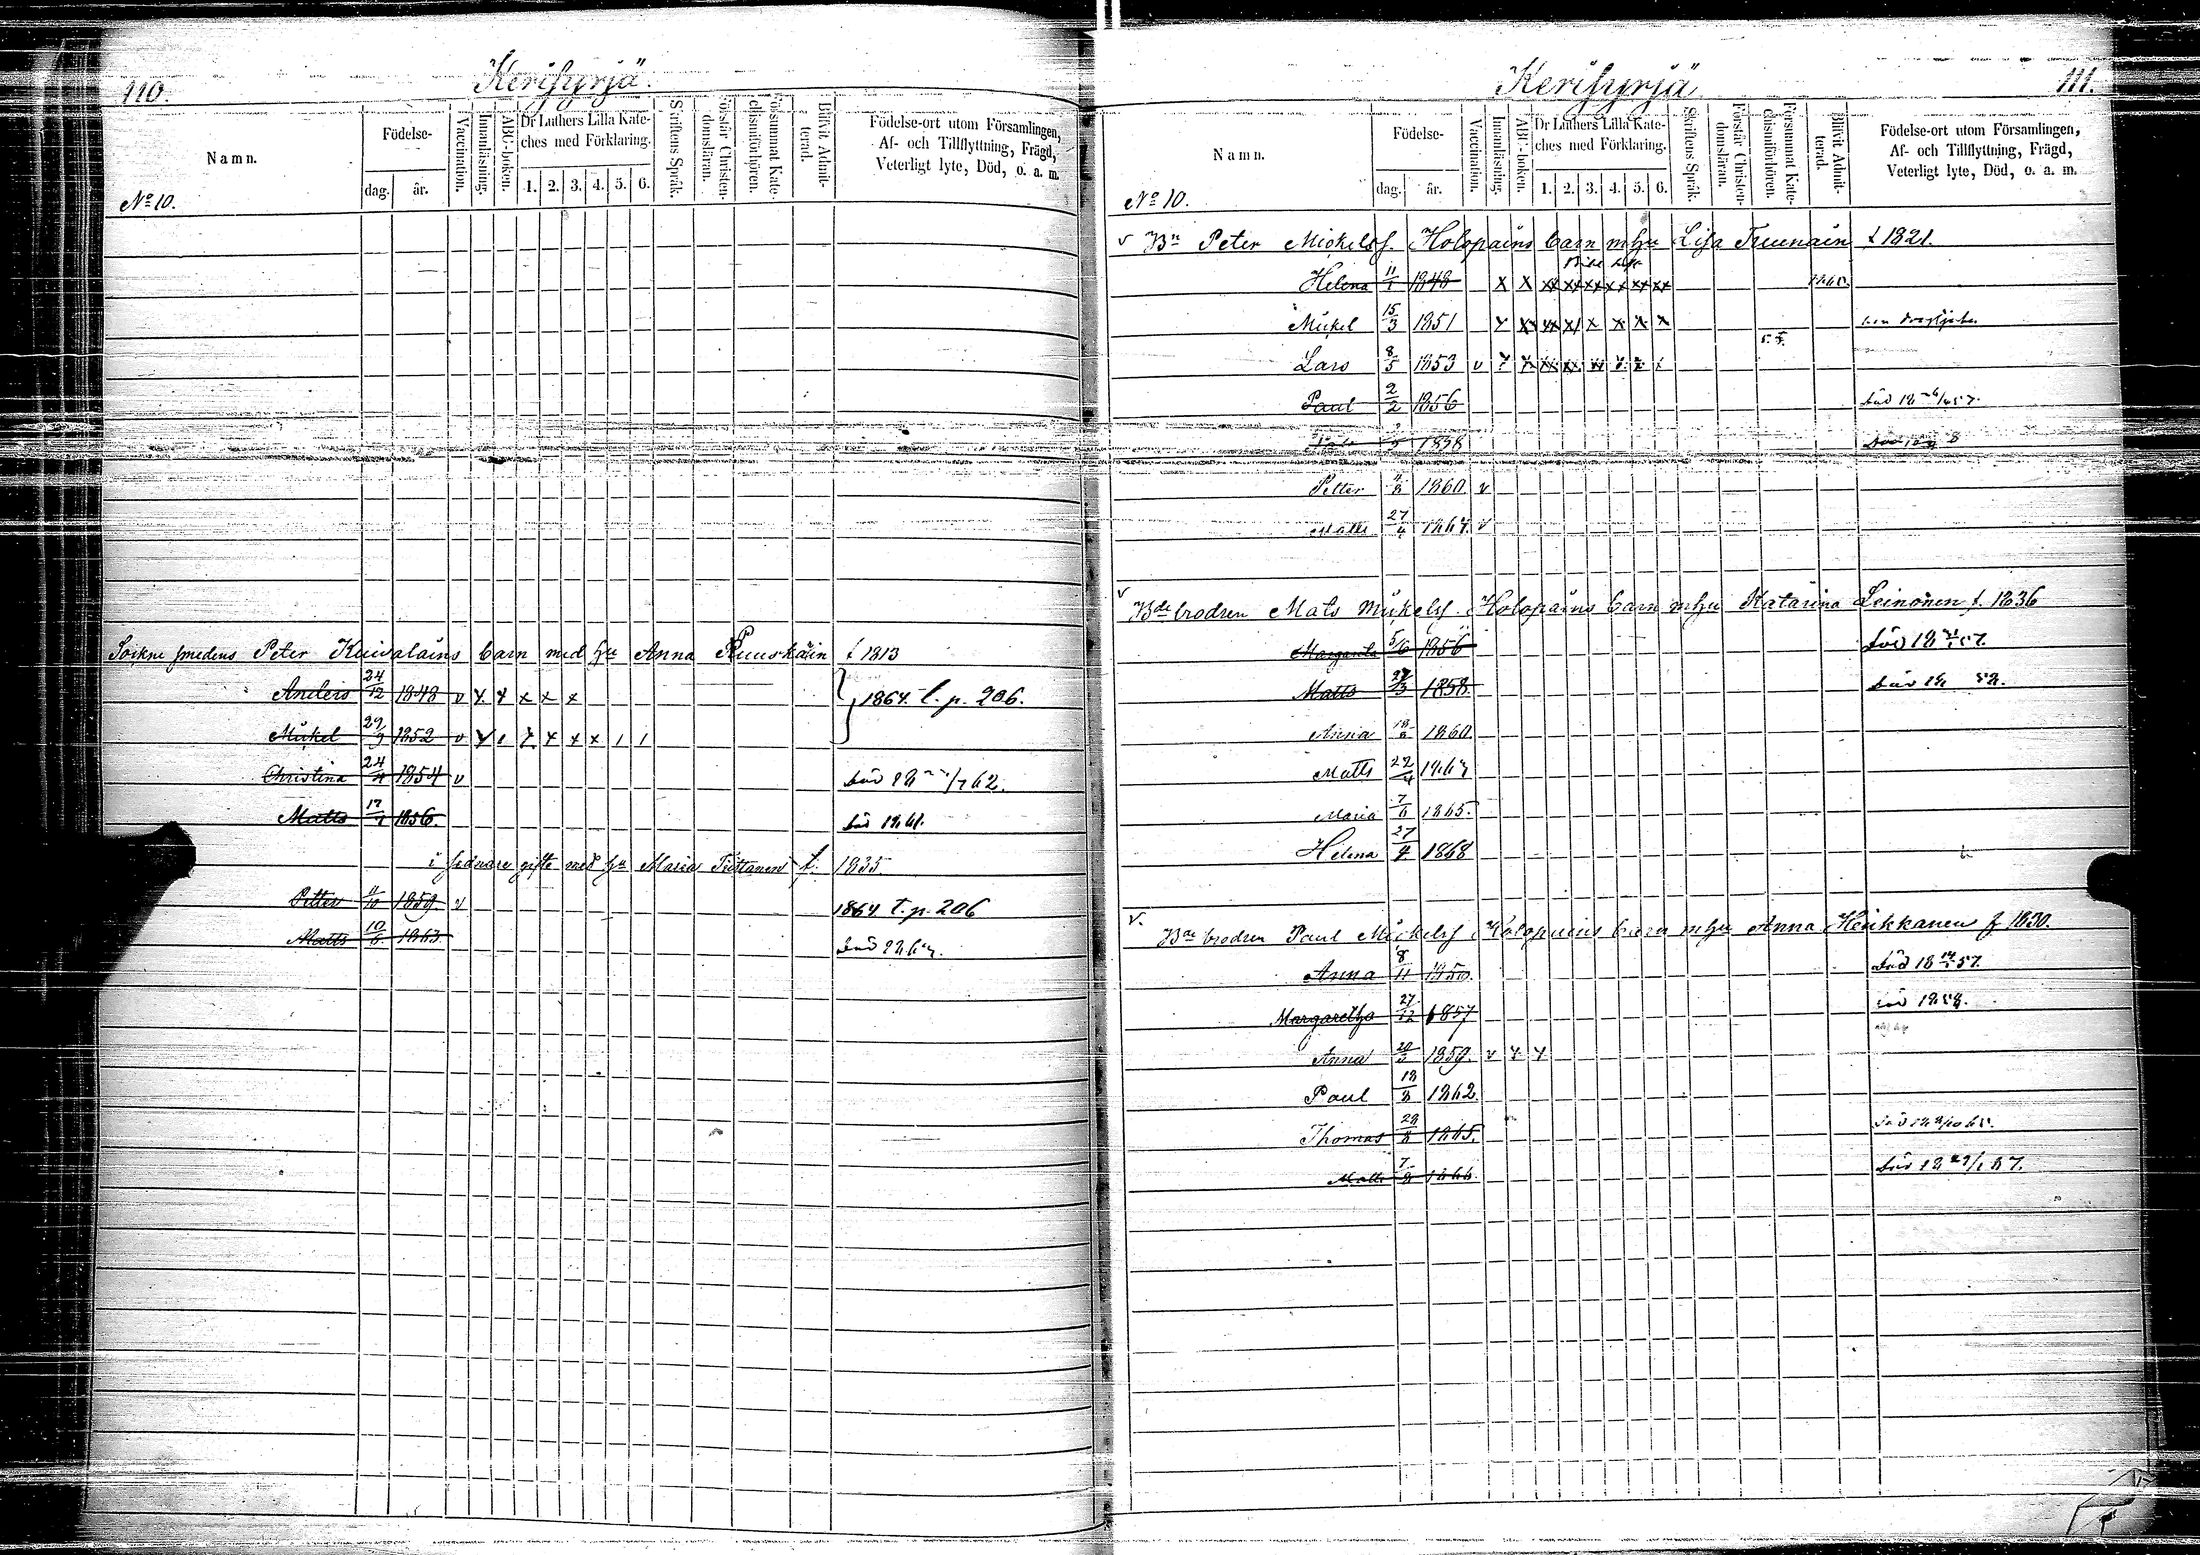 110.
Kerisyrjä.
Namn.
Födelse-
dag.
år.
Vaccination.
Innanläsning.
ABC-boken.
Dr Luthers Lilla Kateches med Förklaring.
1. 2. 3. 4. 5. 6.
Skriftens Språk.
Förstår Christendomsläran.
Försummat Katechismiförhören.
Blifvit Admitterad.
Födelse-ort utom Församlingen,
Af- och Tillflyttning, Frägd,
Veterligt lyte, Död, o. a. m.
No 10.
Sockne smedens Peter Kuivalains barn med hu Anna Ruuskain f 1813
Anders 24/12 1848 v x x x x x } 1864 t. p. 206.
Mickel 29/9 1852 v
Christina 24/4 1854 v död 18 /7 62.
Matts 17 1856. död 1861.
i sednare gifte med hu Maria Tiistanen f. 1835.
Petter 11/10 1859. v 1864 t. p. 206
Matts 10/6 1863 död
111.
Kerisyrjä
Namn.
Födelse-
dag.
år.
Vaccination.
Innanläsning.
ABC-boken.
Dr Luthers Lilla Kateches med Förklaring.
1. 2. 3. 4. 5. 6.
Skriftens Språk.
Förstår Christendomsläran.
Försummat Katechismiförhören.
Blifvit Admitterad.
Födelse-ort utom Församlingen,
Af- och Tillflyttning, Frägd,
Veterligt lyte, Död, o. a. m.
No 10.
v Bn Peter Mickelss. Holopains barn m hu Lisa Truunain f 1821.
Helena 11/1 1848 x x xx xx xx xx xx xx
Mickel 15/3 1851
Lars 8/5 1853 v
Paul 2/2 1856 död
1858
Petter 1860 v
Matts 27 1864. v
v Bde brodren Mats Mickelss. Holopains barn m hu Katarina Leinonen f. 1836
Margareta 5/6 1856 död 18 57.
Matts 1858. död
Anna 18/8 1860.
Matts 22/4
Maria 7/6 1865.
Helena 27/4 1868
v. Bde brodren Paul Mickelss Holopains barn m hu Anna Heikkanen f 1830.
Anna 8/11 1850. död 18 57.
Margaretha 27/12 1857 död 1858.
Anna 20/3 1859. v x x
Paul 18/8 1862
Thomas 28/8 1865.
Matts 7/8 död